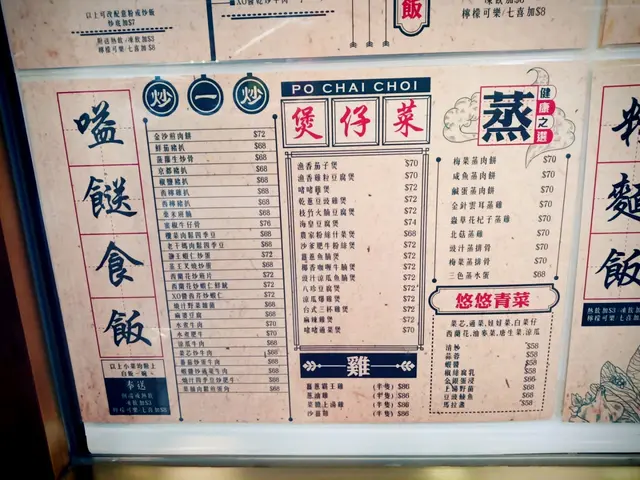 以上可改配意粉或炒飯
炒底加$7
檸檬可樂/七喜加$8
飯
檸檬可樂/七喜加$8
嗌餸食飯
以上小菜均附上
白飯一碗
奉送
凍飲加$3
檸檬可樂/七喜加$8
炒一炒
金沙煎肉餅 $72
鮮茄豬扒 $68
菠蘿生炒骨 $68
京都豬扒 $68
椒鹽豬扒 $68
西檸雞扒 $68
西檸豬扒 $68
粟米斑腩 $68
蜜椒牛仔骨 $76
欖菜肉鬆四季豆 $68
老干媽肉鬆四季豆 $68
滑蛋蝦仁 $72
菜王叉燒炒蛋 $68
西蘭花炒班片 $72
西蘭花炒蝦仁鮮魷 $72
XO醬西芹炒蝦仁 $72
燒汁野菜雜菌 $68
麻婆豆腐 $68
水煮牛肉 $70
水煮肥牛 $70
涼瓜牛肉 $68
菜芯炒牛肉 $68
PO CHAI CHOI
煲仔菜
漁香茄子煲 $70
漁香雞粒豆腐煲 $70
啫啫雞煲 $70
乾蔥豆豉雞煲 $70
枝竹火腩豆腐煲 $70
海皇豆腐煲 $74
農家粉絲什菜煲 $68
沙爹肥牛粉絲煲 $70
薑蔥魚腩煲 $70
椰香咖喱牛腩煲 $70
豉汁涼瓜魚腩煲 $70
八珍豆腐煲 $70
涼瓜雞煲 $70
台式三杯雞煲 $70
麻辣雞煲 $70
啫啫通菜煲 $70
雞
薑蔥霸王雞 (半隻) $86
蔥油雞 (半隻) $86
菜膽上湯雞 (半隻) $86
沙薑雞 (半隻) $86
蒸
健康之選
梅菜蒸肉餅 $70
咸魚蒸肉餅 $70
鹹蛋蒸肉餅 $70
金針雲耳蒸雞 $70
蟲草花杞子蒸雞 $70
北菇蒸雞 $70
豉汁蒸排骨 $70
梅菜蒸排骨 $70
三色蒸水蛋 $68
悠悠青菜
菜芯,通菜,娃娃菜,白菜仔
西蘭花,油麥菜,唐生菜,涼瓜
清炒 $58
蒜蓉 $58
蝦醬 $58
椒絲腐乳 $58
金銀蛋浸 $66
上湯野菌 $68
豆豉鯪魚 $68
馬拉盞 $58